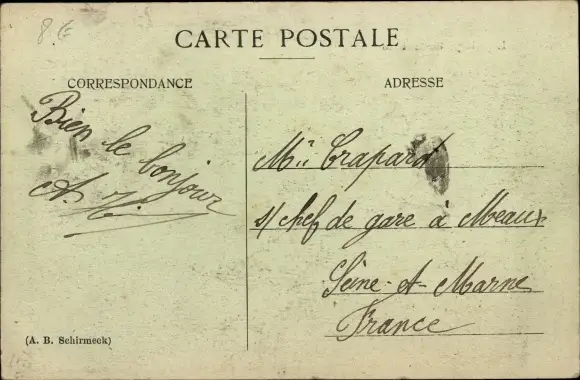 8 €
CARTE POSTALE
CORRESPONDANCE
Bien le bonjour
A. H.
(A. B. Schirmeck)
ADRESSE
Mr Crapard
s/ chef de gare à Meaux
Seine-et-Marne
France